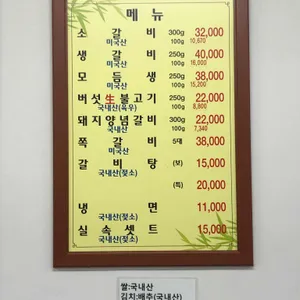 메 뉴
소 갈 비 300g 32,000
미국산 100g 10,670
생 갈 비 250g 40,000
미국산 100g 16,000
모 듬 생 250g 38,000
미국산 100g 15,200
버섯生불고기 250g 22,000
국내산(육우) 100g 8,800
돼지양념갈비 300g 22,000
국내산 100g 7,340
쪽 갈 비 5대 38,000
미국산
갈 비 탕 (보) 15,000
국내산(젖소)
(특) 20,000
냉 면 11,000
국내산(젖소)
실 속 셋 트 15,000
국내산(젖소)
쌀:국내산
김치:배추(국내산)